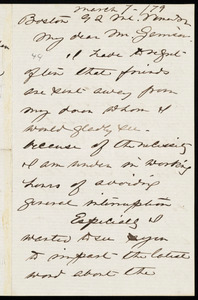 March 7 - /79
Boston 92 Mt. Vernon
My dear Mr Garrison
I have to regret
often that friends
are sent away from
my door whom I
would gladly see -
because of the necessity
I am under in working
hours of avoiding
general interruption
Especially I
wanted to see you
to impart the latest
word about the